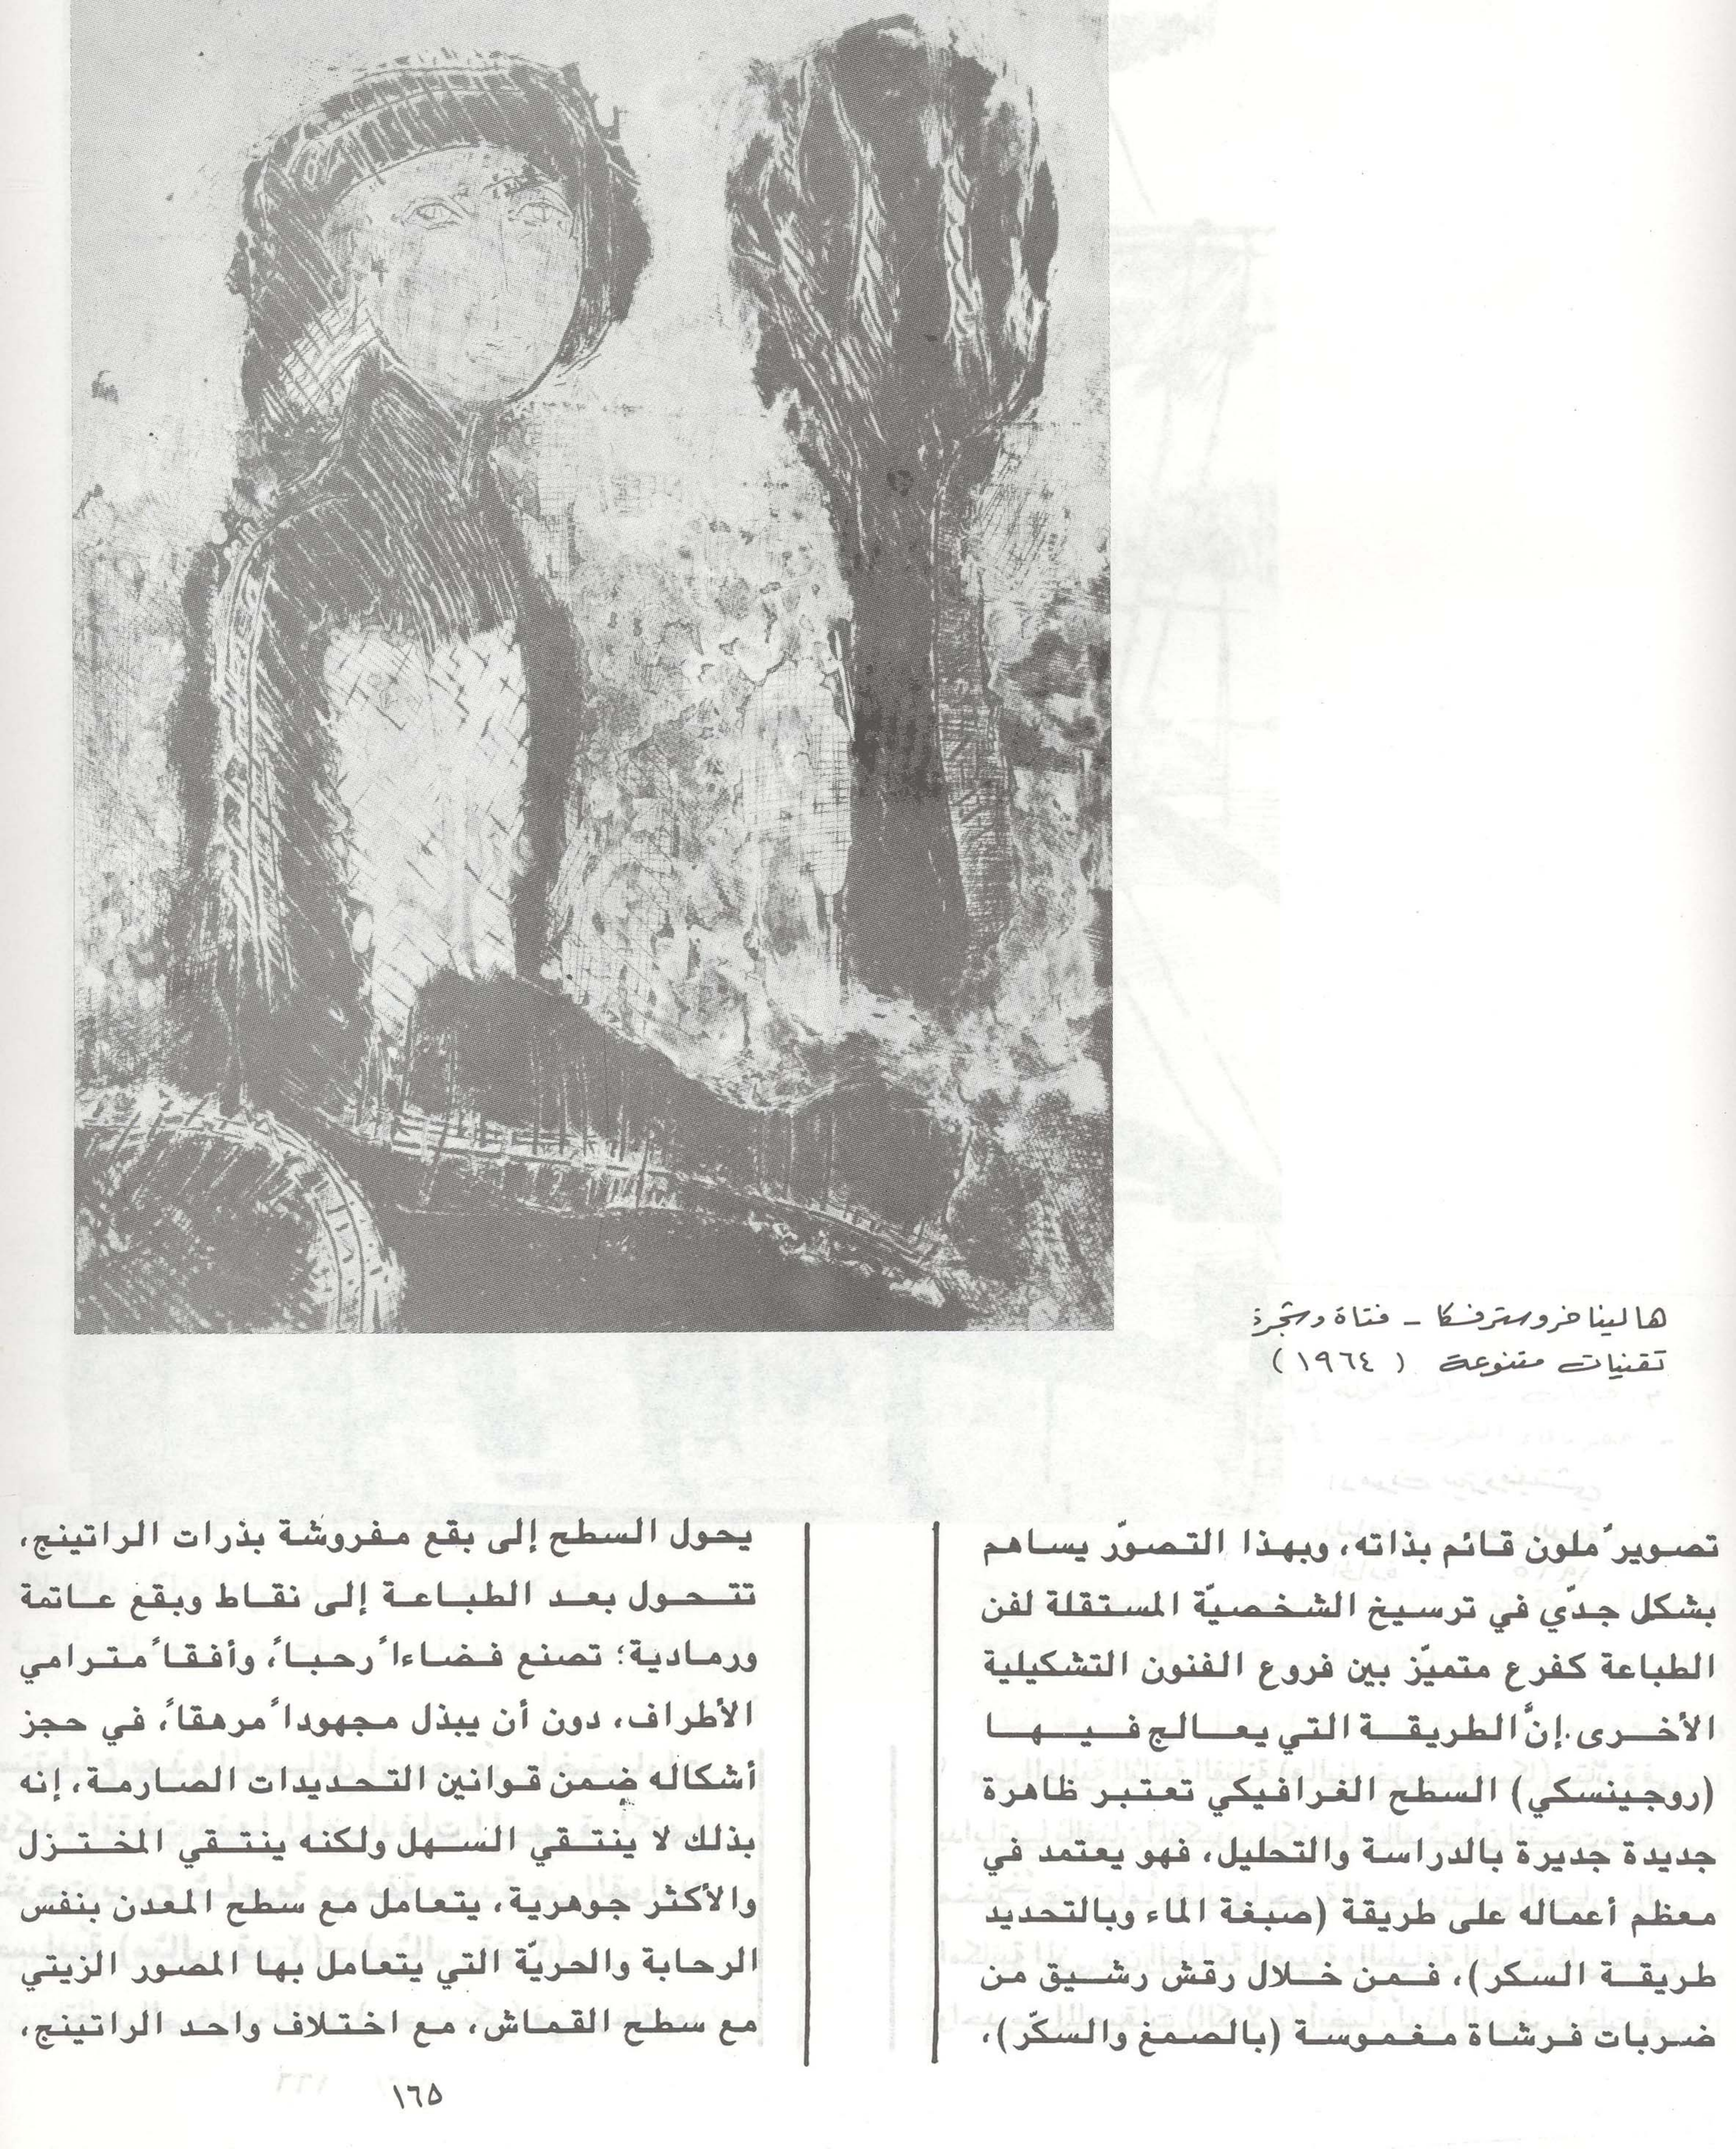 هالينا خروسترفسكا – فتاة وشجرة
تقنيات متنوعة (١٩٦٤)
تصويرٌ ملون قائم بذاته، وبهذا التصوّر يساهم
بشكل جدّي في ترسيخ الشخصيّة المستقلة لفن
الطباعة كفرع متميّز بين فروع الفنون التشكيلية
الأخرى. إنَّ الطريقة التي يعالج فيها
(روجينسكي) السطح الغرافيكي تعتبر ظاهرة
جديدة جديرة بالدراسة والتحليل، فهو يعتمد في
معظم أعماله على طريقة (صبغة الماء وبالتحديد
طريقة السكر)، فمن خلال رقش رشيق من
ضربات فرشاة مغموسة (بالصمغ والسكّر)،
يحول السطح إلى بقع مفروشة بذرات الراتينج،
تتحول بعد الطباعة إلى نقاط وبقع عاتمة
ورمادية؛ تصنع فضاءاً رحباً، وأفقاً مترامي
الأطراف، دون أن يبذل مجهوداً مرهقاً، في حجز
أشكاله ضمن قوانين التحديدات الصارمة، إنه
بذلك لا ينتقي السهل ولكنه ينتقي المختزل
والأكثر جوهرية، يتعامل مع سطح المعدن بنفس
الرحابة والحريّة التي يتعامل بها المصور الزيتي
مع سطح القماش، مع اختلاف واحد الراتينج،
١٦٥